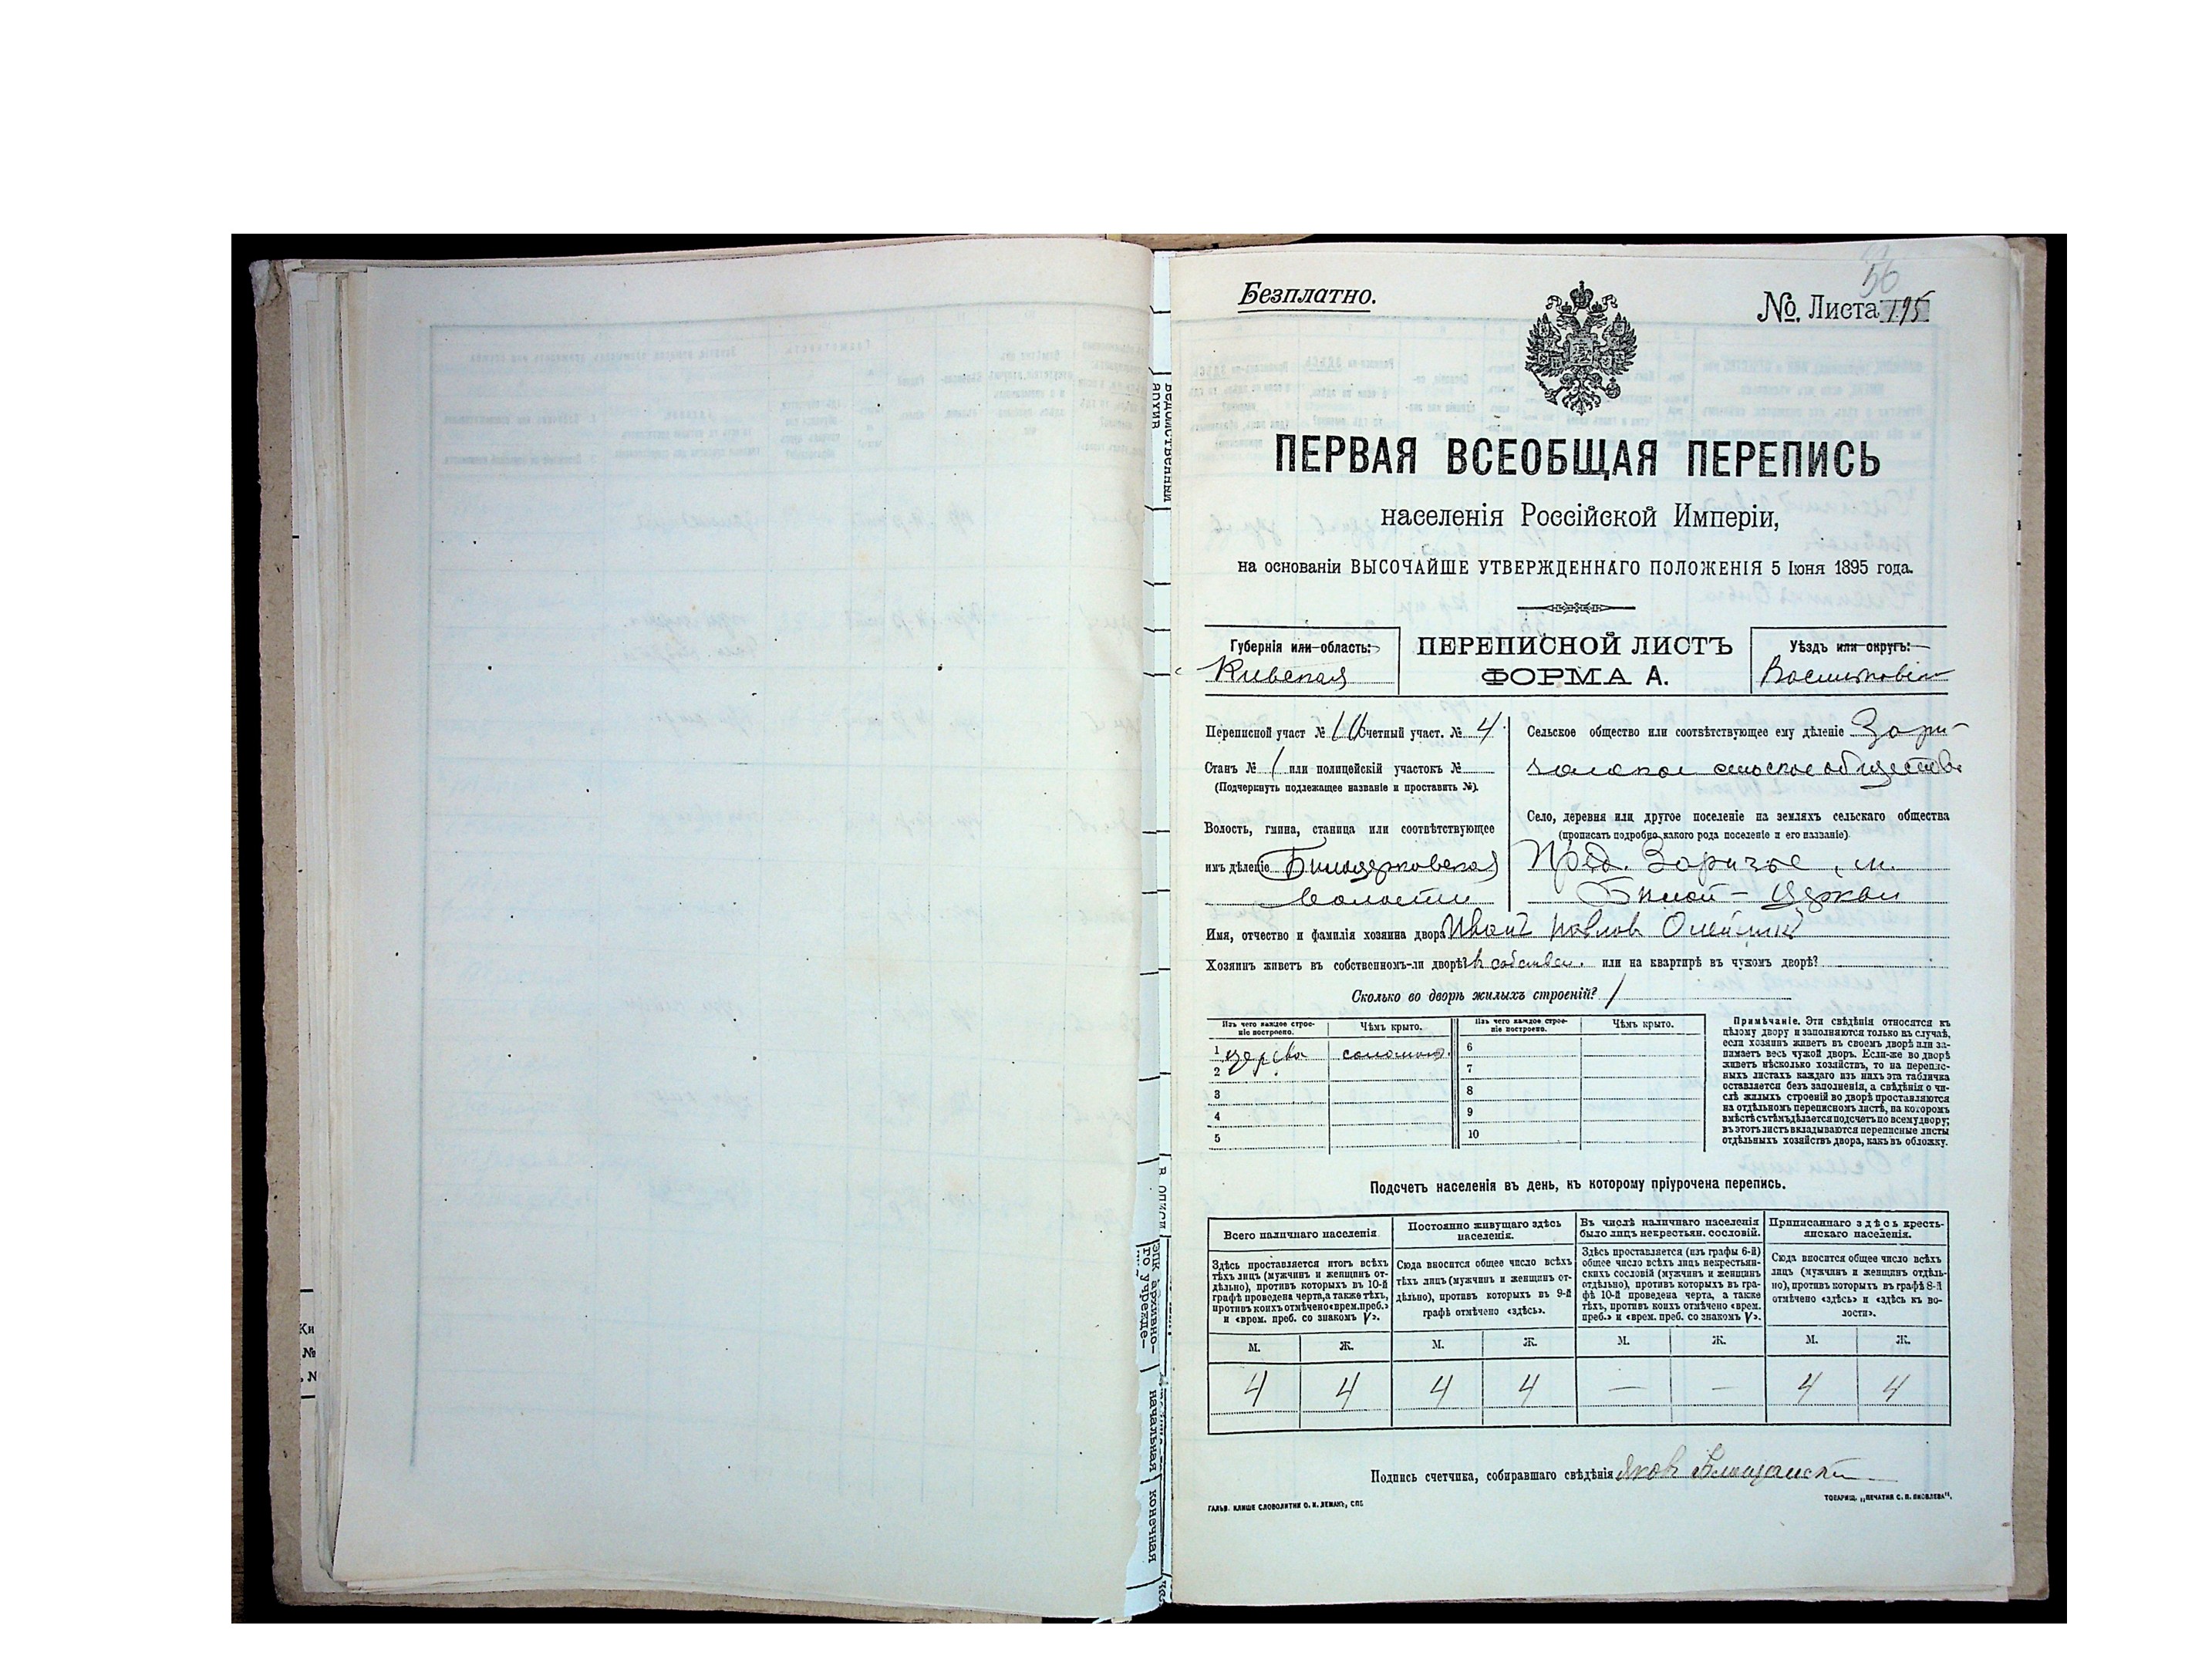 56
Безплатно.
№ Листа 195
ПЕРВАЯ ВСЕОБЩАЯ ПЕРЕПИСЬ
населенія Россійской Имперіи,
на основаніи ВЫСОЧАЙШЕ УТВЕРЖДЕННАГО ПОЛОЖЕНІЯ 5 Іюня 1895 года.
Губернія или область:
Киевская
ПЕРЕПИСНОЙ ЛИСТЪ
ФОРМА А.
Уѣздъ или округъ:
Переписной участ № Счетный участ. № 4
Станъ № 1 или полицейскій участокъ №
(Подчеркнуть подлежащее названіе и проставить №).
Волость, гмина, станица или соотвѣтствующее
имъ дѣленіе Билоцерковская
волости
Сельское общество или соотвѣтствующее ему дѣленіе Зари-
сельское общество
Село, деревня или другое поселеніе на земляхъ сельскаго общества
(прописать подробно какого рода поселеніе и его названіе)
Пред. Заричье, м.
Билой-Церкви
Имя, отчество и фамилія хозяина двора Иванъ Павлов Олейникъ
Хозяинъ живетъ въ собственномъ-ли дворѣ? в собствен. или на квартирѣ въ чужомъ дворѣ?
Сколько во дворѣ жилыхъ строеній? 1
Изъ чего каждое строе-
ніе построено.
Чѣмъ крыто.
Изъ чего каждое строе-
ніе построено.
Чѣмъ крыто.
1 дерева соломою. 6
2 7
3 8
4 9
5 10
Примѣчаніе. Эти свѣдѣнія относятся къ
цѣлому двору и заполняются только въ случаѣ,
если хозяинъ живетъ въ своемъ дворѣ или за-
нимаетъ весь чужой дворъ. Если-же во дворѣ
живетъ нѣсколько хозяйствъ, то на перепис-
ныхъ листахъ каждаго изъ нихъ эта табличка
оставляется безъ заполненія, а свѣдѣнія о чи-
слѣ жилыхъ строеній во дворѣ проставляются
на отдѣльномъ переписномъ листѣ, на которомъ
вмѣстѣ съ тѣмъ дѣлается подсчетъ по всему двору;
въ этотъ листъ вкладываются переписные листы
отдѣльныхъ хозяйствъ двора, какъ въ обложку.
Подсчетъ населенія въ день, къ которому пріурочена перепись.
Всего наличнаго населенія
Здѣсь проставляется итогъ всѣхъ
тѣхъ лицъ (мужчинъ и женщинъ от-
дѣльно), противъ которыхъ въ 10-й
графѣ проведена черта, а также тѣхъ,
противъ коихъ отмѣчено «врем. преб.»
и «врем. преб. со знакомъ V».
Постоянно живущаго здѣсь
населенія.
Сюда вносится общее число всѣхъ
тѣхъ лицъ (мужчинъ и женщинъ от-
дѣльно), противъ которыхъ въ 9-й
графѣ отмѣчено «здѣсь».
Въ числѣ наличнаго населенія
было лицъ некрестьян. сословій.
Здѣсь проставляется (изъ графы 6-й)
общее число всѣхъ лицъ некрестьян-
скихъ сословій (мужчинъ и женщинъ
отдѣльно), противъ которыхъ въ гра-
фѣ 10-й проведена черта, а также
тѣхъ, противъ коихъ отмѣчено «врем.
преб.» и «врем. преб. со знакомъ V».
Приписаннаго здѣсь кресть-
янскаго населенія.
Сюда вносится общее число всѣхъ
лицъ (мужчинъ и женщинъ отдѣль-
но), противъ которыхъ въ графѣ 8-й
отмѣчено «здѣсь» и «здѣсь къ во-
лости».
М. Ж. М. Ж. М. Ж. М. Ж.
4 4 4 4 — — 4 4
Подпись счетчика, собиравшаго свѣдѣнія Яков
ГАЛЬВ. КЛИШЕ СЛОВОЛИТНИ О. И. ЛЕМАНЪ, СПБ
ТОВАРИЩ. „ПЕЧАТНЯ С. П. ЯКОВЛЕВА".
начальная
конечная